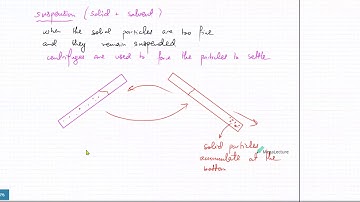 suspension (solid + solvent)
when the solid particles are too fine
and they remain suspended
centrifuges are used to force the particles to settle.
solid particles
accumulate at the
bottom